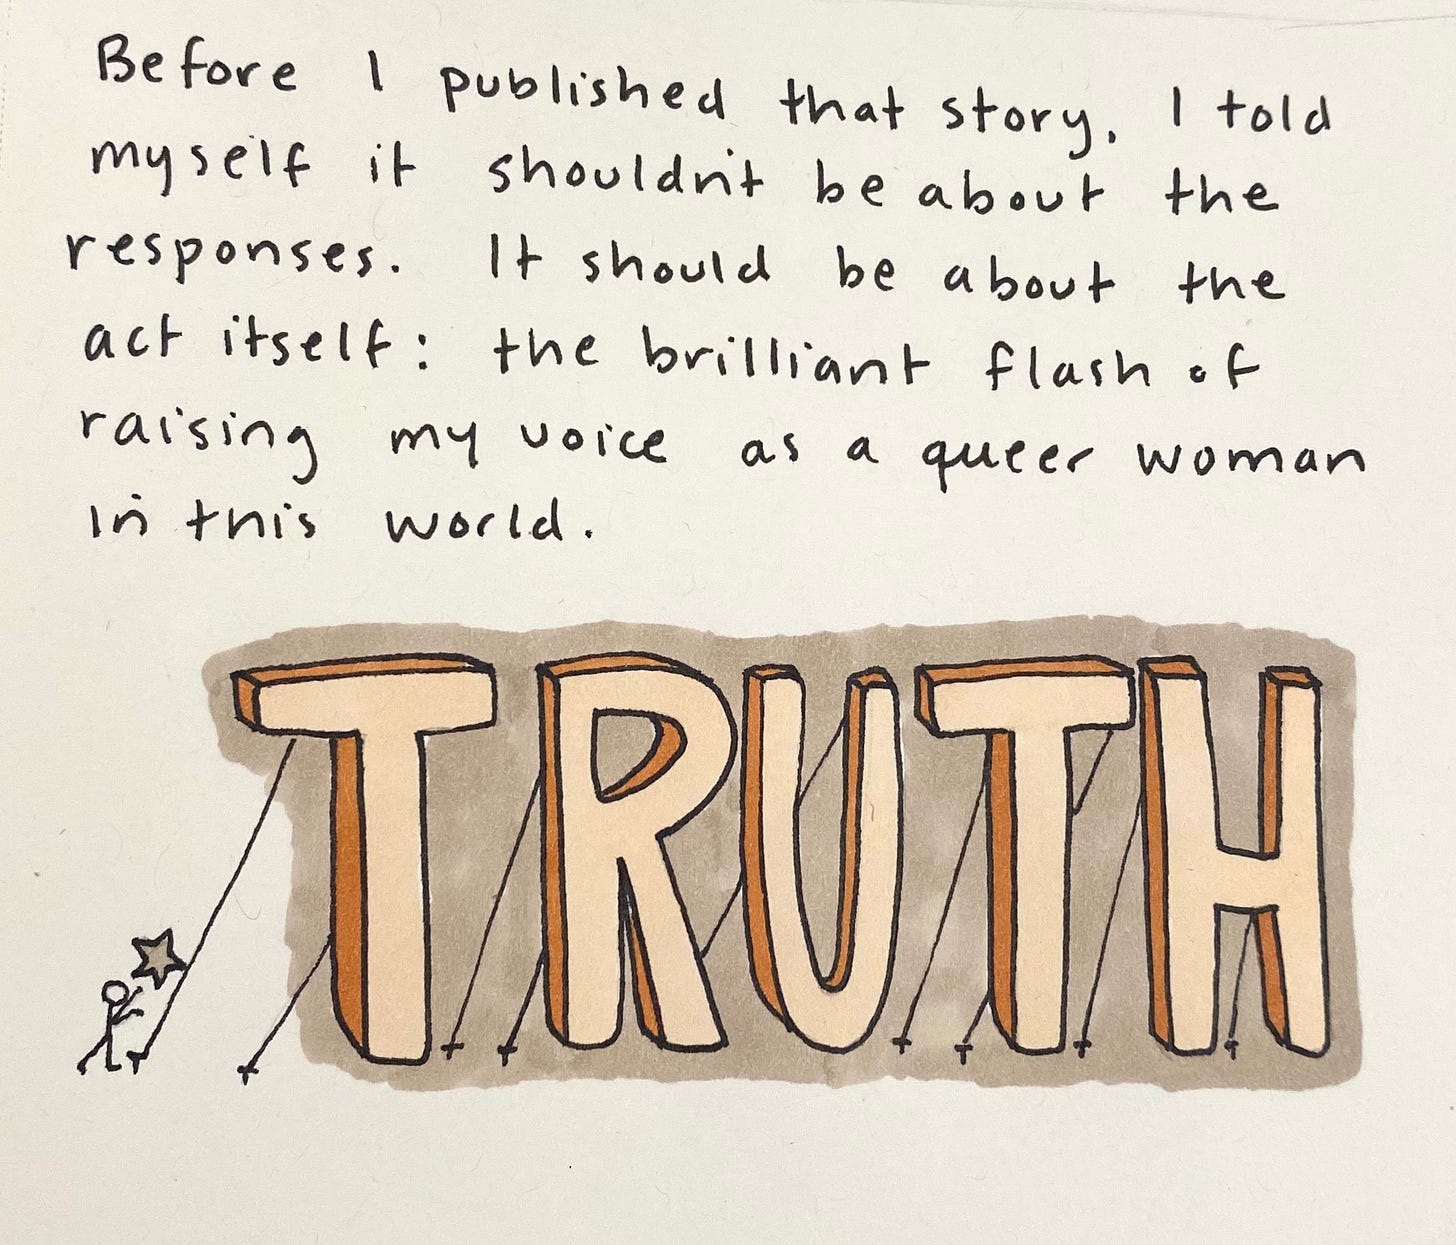 Before I published that story, I told
myself it shouldn't be about the
responses. It should be about the
act itself: the brilliant flash of
raising my voice as a queer woman
in this world.
TRUTH